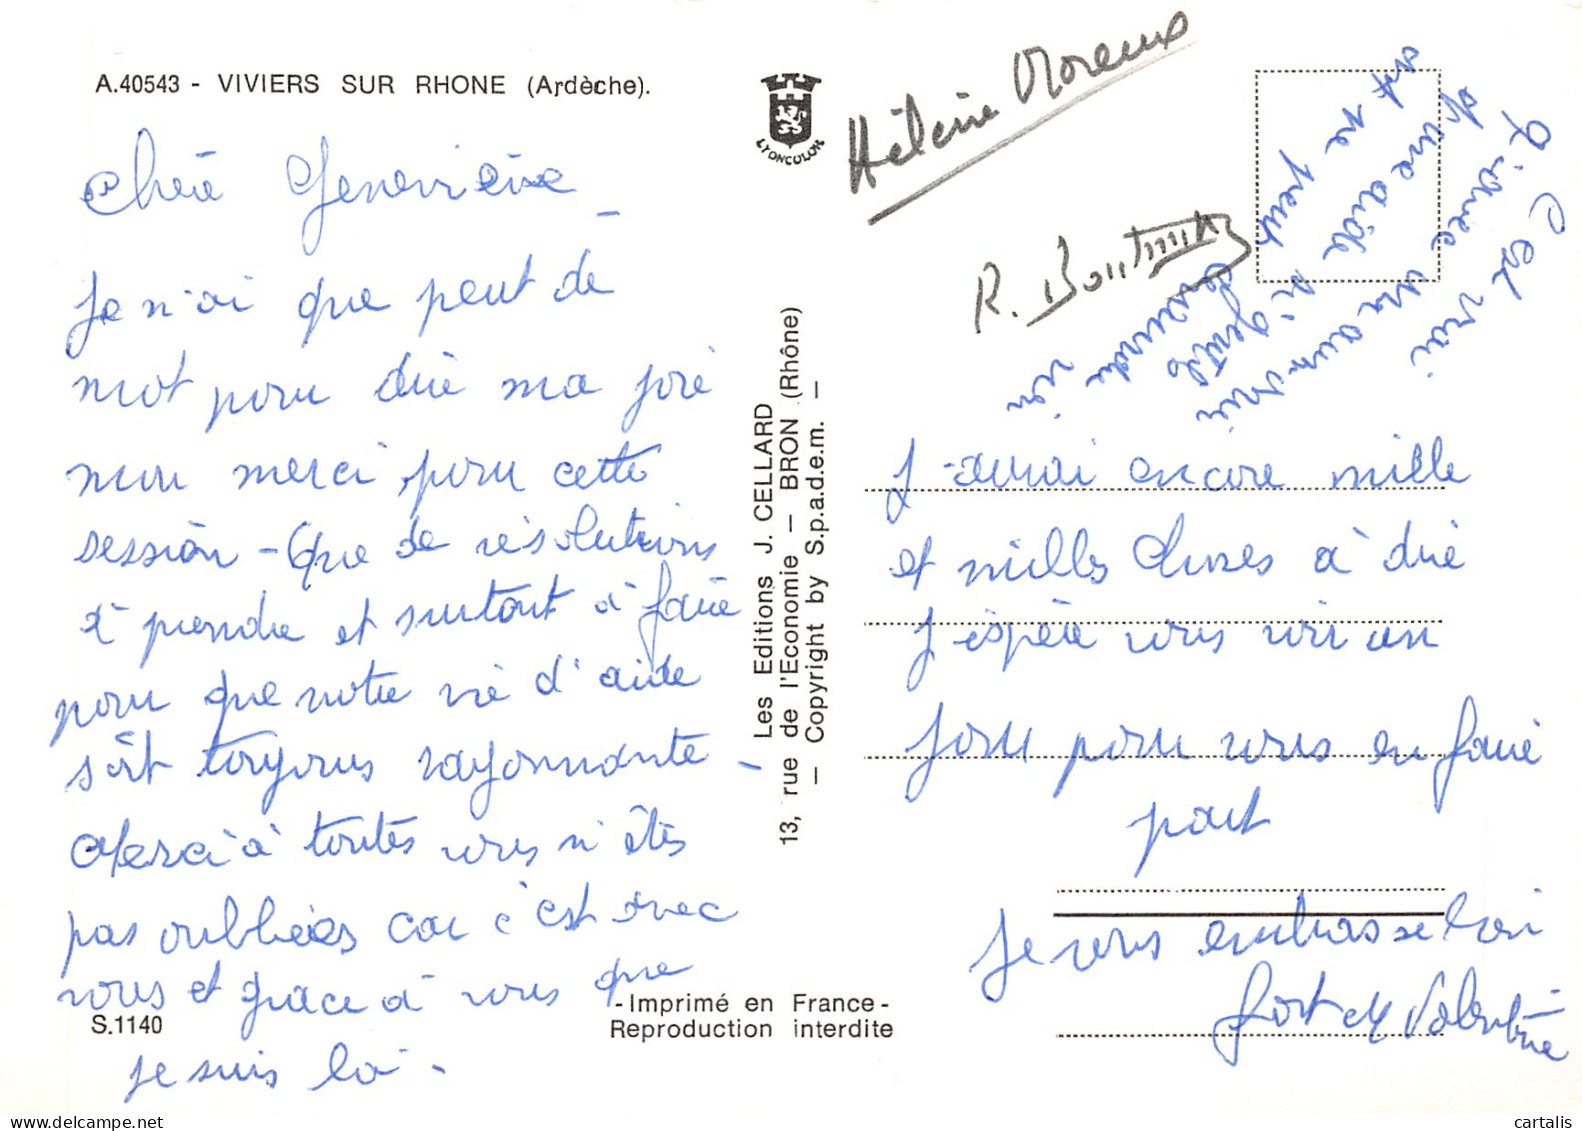 A.40543 - VIVIERS SUR RHONE (Ardèche).
Chère Geneviève -
Je n'ai que peut de
mot pour dire ma joie
mon merci pour cette
session - Que de résolutions
à prendre et surtout à faire
pour que notre vie d'aide
soit toujours rayonnante -
Merci à toutes vous n'êtes
pas oubliées car c'est avec
vous et grâce à vous que
je suis loi -
S.1140
LYONCOLOR
Les Editions J. CELLARD
13, rue de l'Economie — BRON (Rhône)
— Copyright by S.p.a.d.e.m. —
-Imprimé en France-
Reproduction interdite
Hélène Moreux
R.
C'est vrai
q'avec un
d'une aide si gentils
on ne peut
devenir rien
J'aurai encore mille
et milles choses à dire
J'espère vous voir un
jour pour vous en faire
part
Je vous embrasse bien
fort Valentine
cartalis